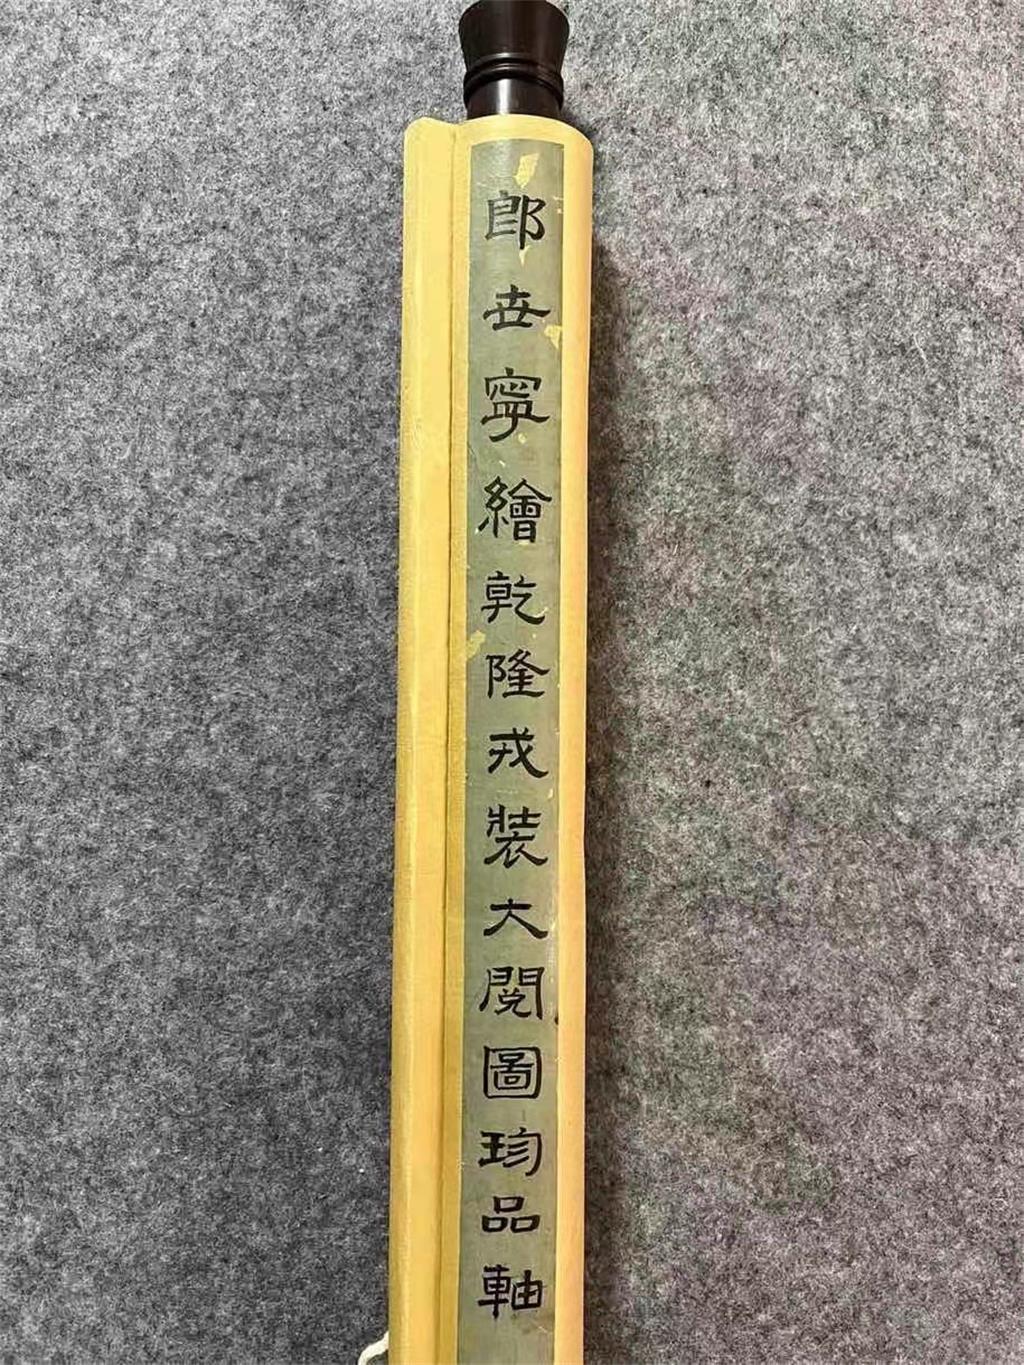 郎世寧繪乾隆戎裝大閱圖珍品軸